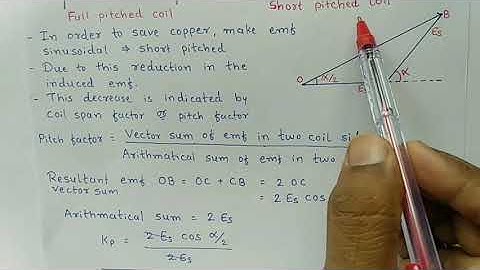 Full pitched coil
Short pitched coil
- In order to save copper, make emf
sinusoidal ⇒ short pitched
- Due to this reduction in the
induced emf.
- This decrease is indicated by
coil span factor or pitch factor
Pitch factor = Vector sum of emf in two coil
Arithmatical sum of emf in two
Resultant emf OB = OC + CB = 2 OC
vector sum
= 2 Es cos
Arithmatical sum = 2 Es
Kp = 2 Es cos α/2
2 Es
O
α/2
B
Es
α